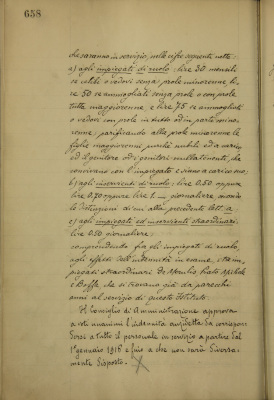 658
che saranno in servizio, nelle cifre seguenti nette:
a) agli impiegati di ruolo, lire 30 mensili
se celibi o vedovi senza prole minorenne li-
re 50 se ammogliati senza prole o con prole
tutta maggiorenne e lire 75 se ammogliati
o vedovi con prole in tutto od in parte mino-
renne; parificando alla prole minorenne le
figlie maggiorenni purché nubili ed a carico,
ed il genitore od i genitori nullatenenti, che
convivano con l'impiegato e siano a carico suo;
b) agli inservienti di ruolo, lire 0.50 oppure
lire 0.70 oppure lire 1.— giornaliere, secondo
le distinzioni di cui alla precedente lett. a
c) agli impiegati ed inservienti straordinari,
lire 0.50 giornaliere;
comprendendo fra gli impiegati di ruolo,
agli effetti dell'indennità in esame, gl'im-
piegati straordinari De Meulio Prato Michele
e Boffe che si trovano già da parecchi
anni al servizio di questo Istituto.
Il Consiglio di Amministrazione approva
a voti unanimi l'indennità suddetta da corrispon-
dersi a tutto il personale in servizio a partire dal
1º gennaio 1918 e fino a che non sarà diversa-
mente disposto.